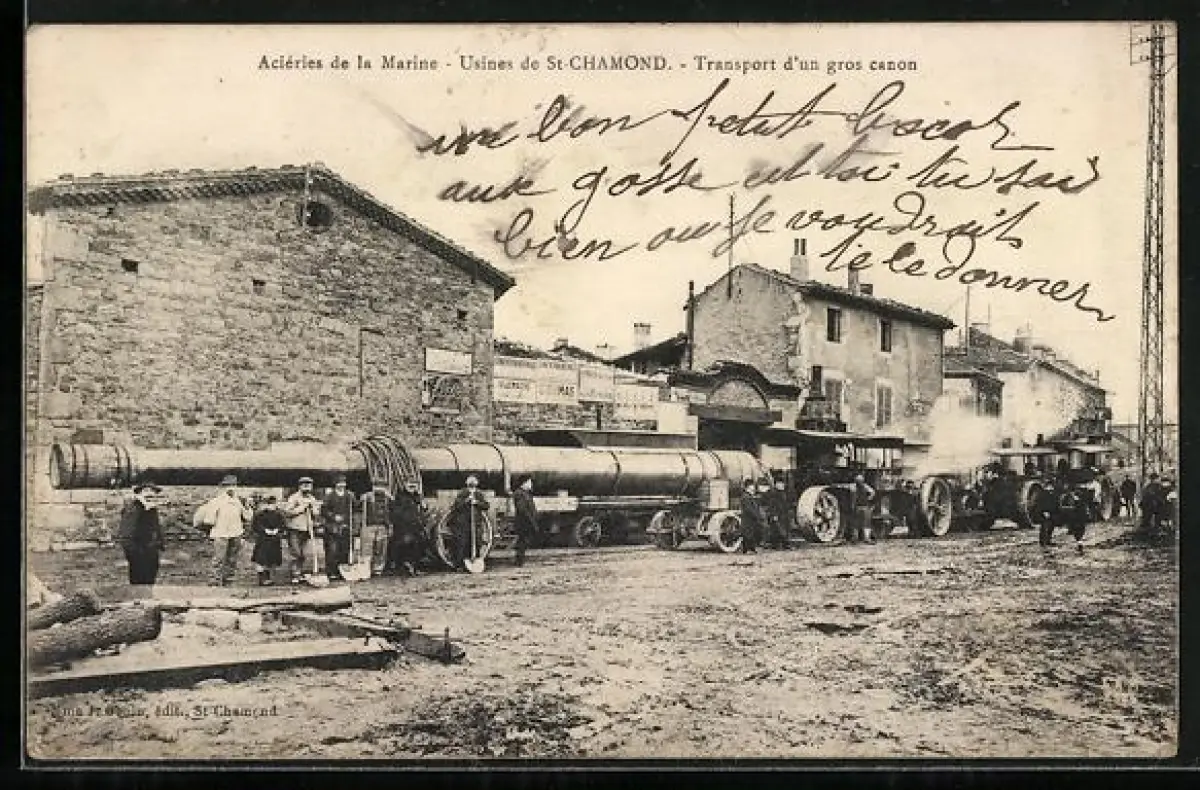 Aciéries de la Marine - Usines de St-CHAMOND. - Transport d'un gros canon
un bon petit bécot
aux gosse et toi tu sai
bien ou je voudrait
te le donner
édit., St Chamond